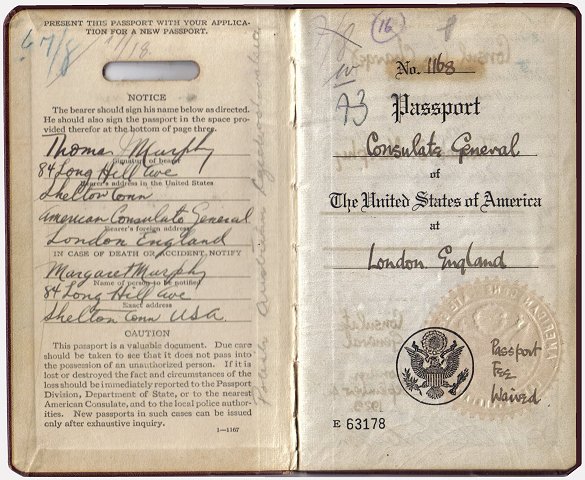 PRESENT THIS PASSPORT WITH YOUR APPLICA-
TION FOR A NEW PASSPORT.
NOTICE
The bearer should sign his name below as directed.
He should also sign the passport in the space pro-
vided therefor at the bottom of page three.
Thomas J Murphy
Signature of bearer
84 Long Hill Ave
Bearer's address in the United States
Shelton Conn
American Consulate General
Bearer's foreign address
London England
IN CASE OF DEATH OR ACCIDENT NOTIFY
Margaret Murphy
Name of person to be notified
84 Long Hill Ave
Exact address
Shelton Conn USA.
CAUTION
This passport is a valuable document. Due care
should be taken to see that it does not pass into
the possession of an unauthorized person. If it is
lost or destroyed the fact and circumstances of the
loss should be immediately reported to the Passport
Division, Department of State, or to the nearest
American Consulate, and to the local police author-
ities. New passports in such cases can be issued
only after exhaustive inquiry.
1—1167
16
No. 1168
Passport
Consulate General
of
The United States of America
at
London. England
Passport
Fee
Waived
E 63178